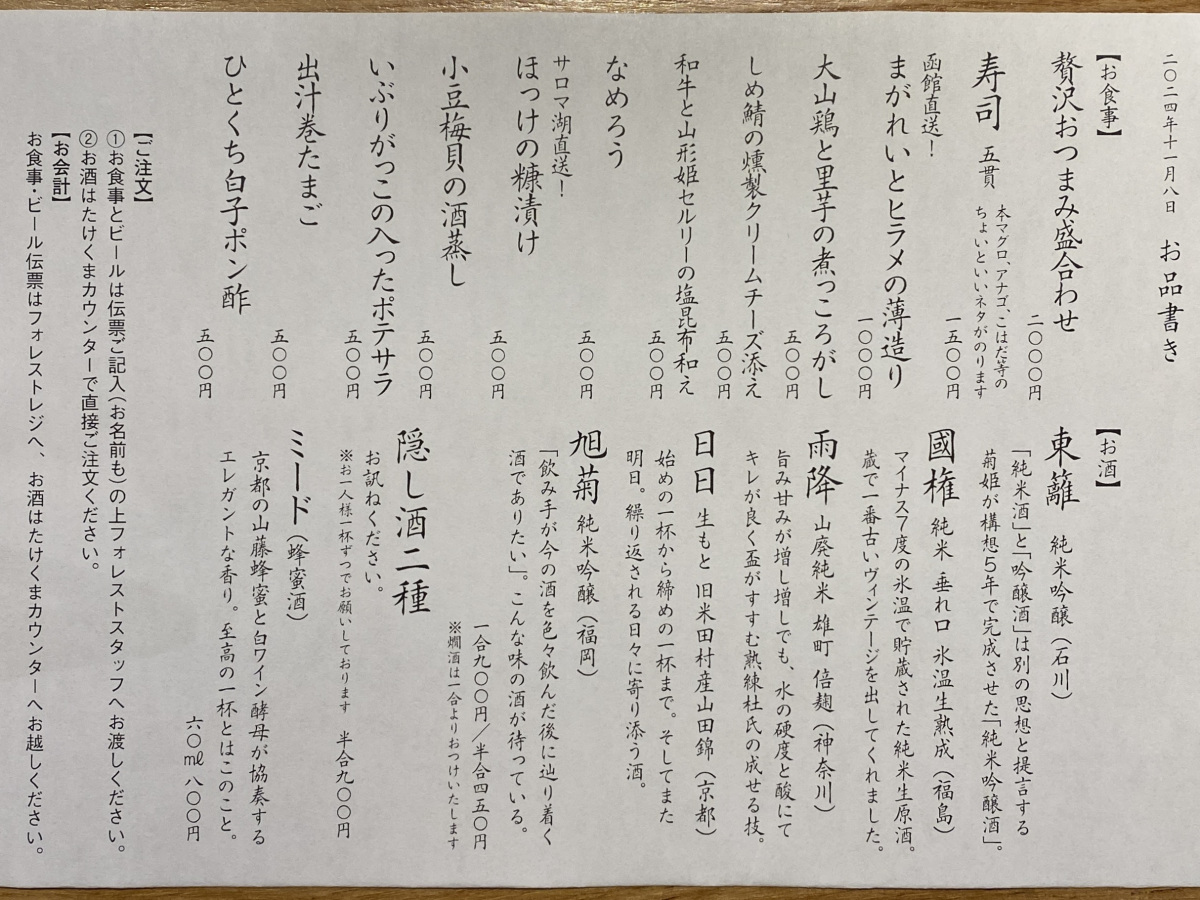 二〇二四年十一月八日　お品書き
【お食事】
贅沢おつまみ盛合わせ
二〇〇〇円
寿司　五貫
本マグロ、アナゴ、こはだ等の
ちょいといいネタがのります
一五〇〇円
函館直送！
まがれいとヒラメの薄造り
一〇〇〇円
大山鶏と里芋の煮っころがし
五〇〇円
しめ鯖の燻製クリームチーズ添え
五〇〇円
和牛と山形姫セルリーの塩昆布和え
五〇〇円
なめろう
五〇〇円
サロマ湖直送！
ほっけの糠漬け
五〇〇円
小豆梅貝の酒蒸し
五〇〇円
いぶりがっこの入ったポテサラ
五〇〇円
出汁巻たまご
五〇〇円
ひとくち白子ポン酢
五〇〇円
【お酒】
東籬　純米吟醸（石川）
「純米酒」と「吟醸酒」は別の思想と提言する
菊姫が構想５年で完成させた「純米吟醸酒」。
國権　純米　垂れ口　氷温生熟成（福島）
マイナス７度の氷温で貯蔵された純米生原酒。
蔵で一番古いヴィンテージを出してくれました。
雨降　山廃純米　雄町　倍麹（神奈川）
旨み甘みが増し増しでも、水の硬度と酸にて
キレが良く盃がすすむ熟練杜氏の成せる技。
日日　生もと　旧米田村産山田錦（京都）
始めの一杯から締めの一杯まで。そしてまた
明日。繰り返される日々に寄り添う酒。
旭菊　純米吟醸（福岡）
「飲み手が今の酒を色々飲んだ後に辿り着く
酒でありたい」。こんな味の酒が待っている。
一合九〇〇円／半合四五〇円
※燗酒は一合よりおつけいたします
隠し酒二種
お訊ねください。
※お一人様一杯ずつでお願いしております　半合九〇〇円
ミード（蜂蜜酒）
京都の山藤蜂蜜と白ワイン酵母が協奏する
エレガントな香り。至高の一杯とはこのこと。
六〇㎖　八〇〇円
【ご注文】
①お食事とビールは伝票ご記入（お名前も）の上フォレストスタッフへお渡しください。
②お酒はたけくまカウンターで直接ご注文ください。
【お会計】
お食事・ビール伝票はフォレストレジへ、お酒はたけくまカウンターへお越しください。